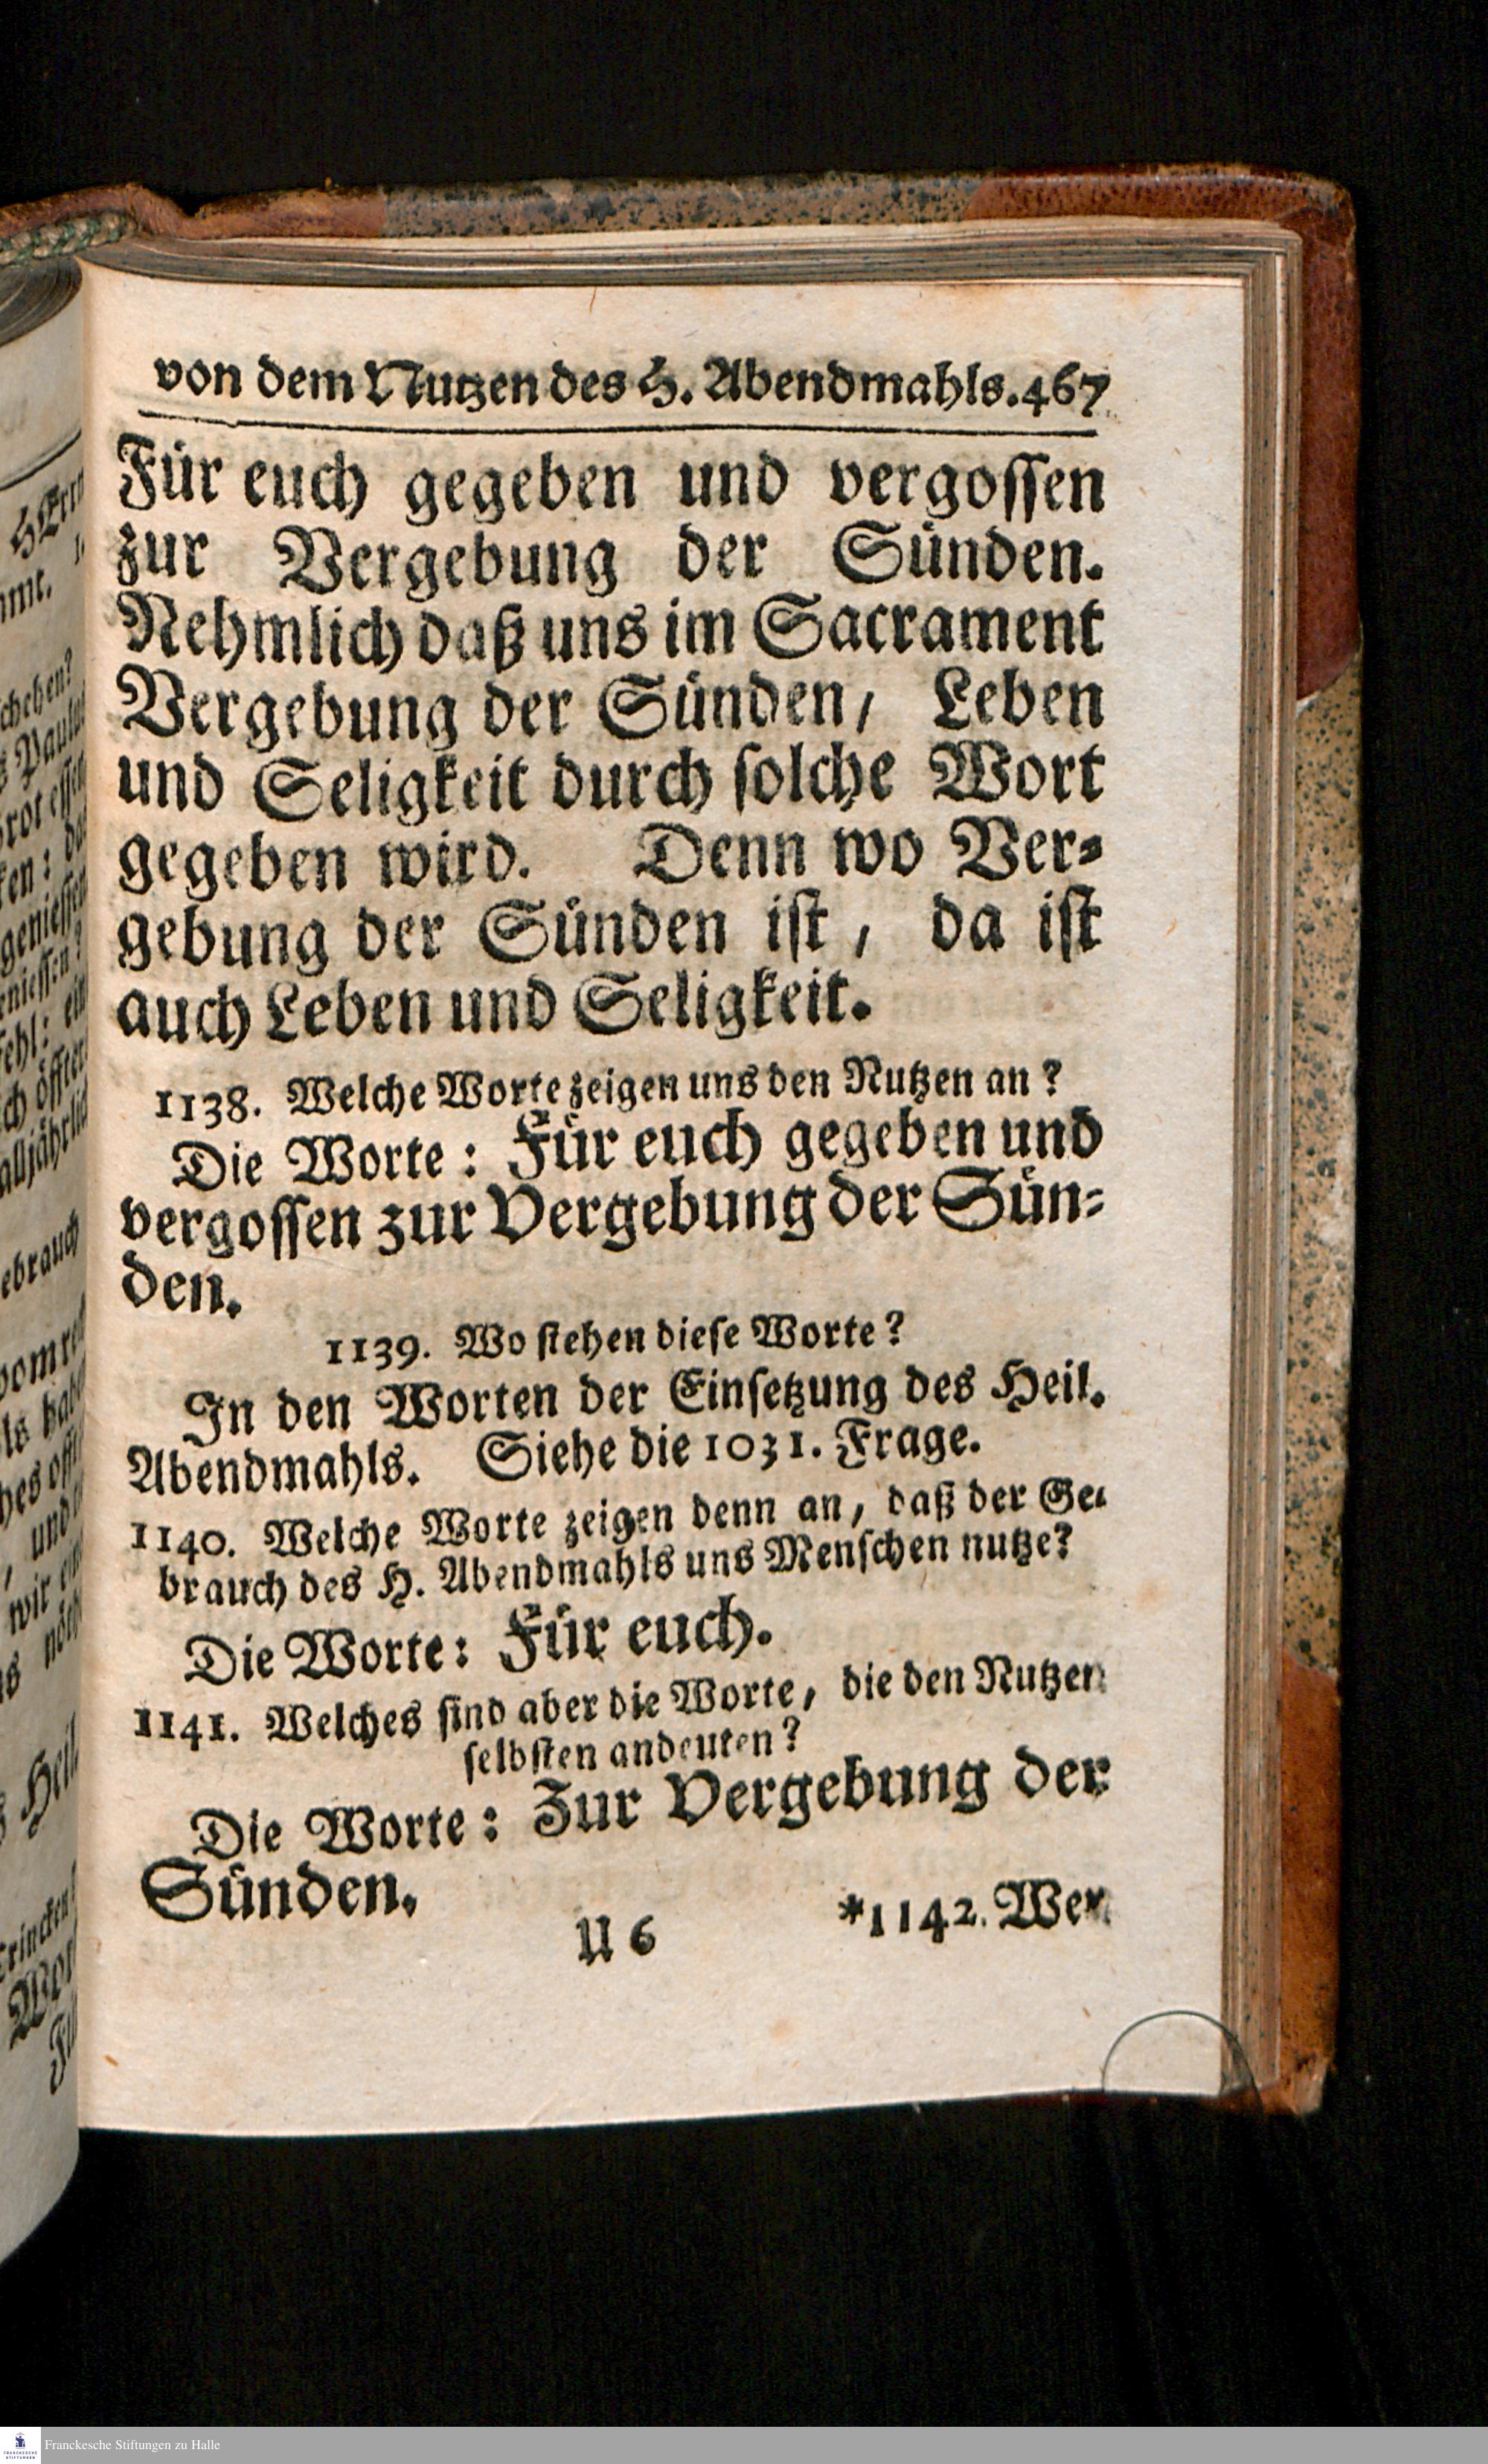 von dem Nutzen des H. Abendmahls. 467
Für euch gegeben und vergossen
zur Vergebung der Sünden.
Nehmlich daß uns im Sacrament
Vergebung der Sünden, Leben
und Seligkeit durch solche Wort
gegeben wird. Denn wo Ver-
gebung der Sünden ist, da ist
auch Leben und Seligkeit.
1138. Welche Worte zeigen uns den Nutzen an?
Die Worte: Für euch gegeben und
vergossen zur Vergebung der Sün-
den.
1139. Wo stehen diese Worte?
In den Worten der Einsetzung des Heil.
Abendmahls. Siehe die 1031. Frage.
1140. Welche Worte zeigen denn an, daß der Ge-
brauch des H. Abendmahls uns Menschen nutze?
Die Worte: Für euch.
1141. Welches sind aber die Worte, die den Nutzen
selbsten andeuten?
Die Worte: Zur Vergebung der
Sünden.
U 6 *1142. Wer
Franckesche Stiftungen zu Halle